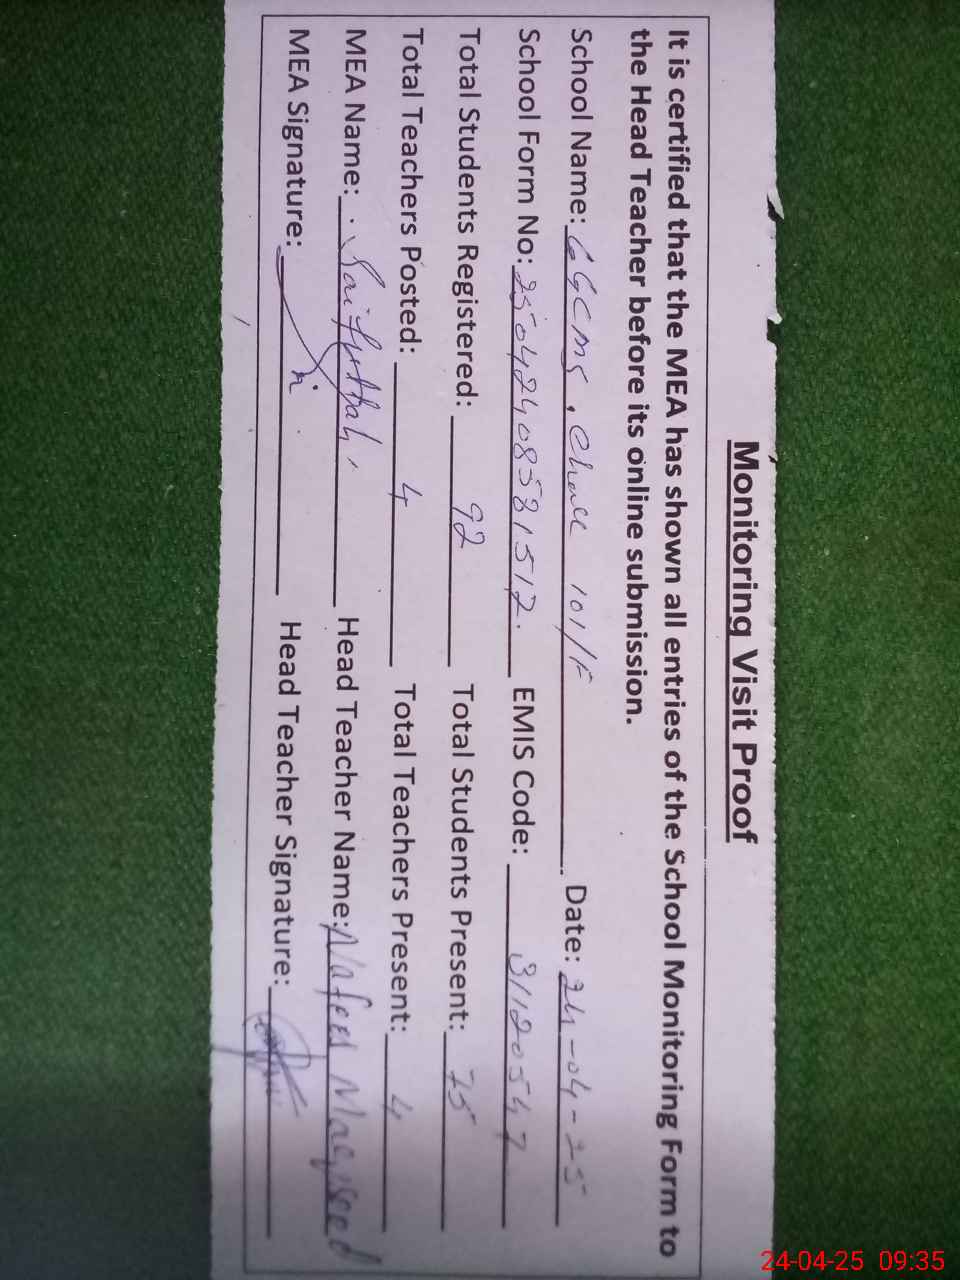 Monitoring Visit Proof
It is certified that the MEA has shown all entries of the School Monitoring Form to
the Head Teacher before its online submission.
School Name: GGCMS, Chak 101/P Date: 24-04-25
School Form No: 25042408581512. EMIS Code: 31120547
Total Students Registered: 92 Total Students Present: 75
Total Teachers Posted: 4 Total Teachers Present: 4
MEA Name: Saifullah Head Teacher Name: Nafees
MEA Signature: Head Teacher Signature:
24-04-25 09:35